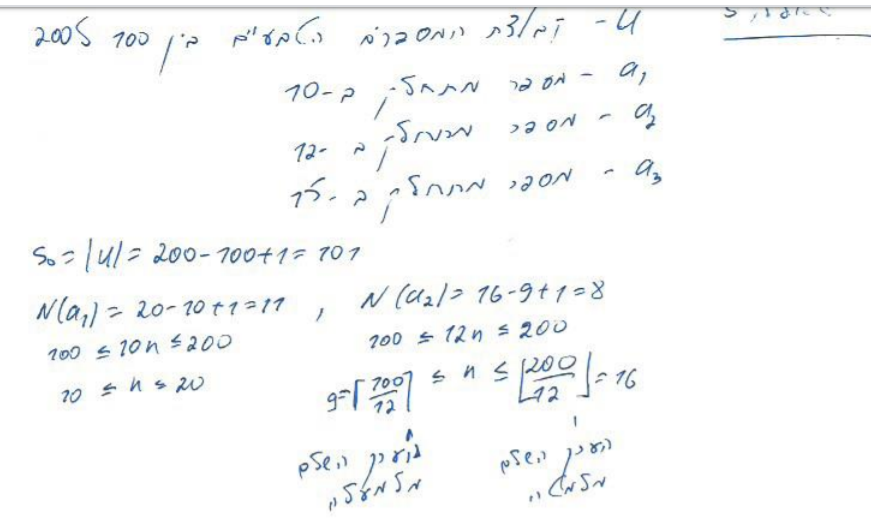 U - קבוצת המספרים הטבעיים בין 100 ל 200
a₁ - מספר מתחלק ב-10
a₂ - מספר מתחלק ב-12
a₃ - מספר מתחלק ב-15
S₀ = |U| = 200-100+1 = 101
N(a₁) = 20-10+1=11 , N(a₂) = 16-9+1=8
100 ≤ 10n ≤ 200 100 ≤ 12n ≤ 200
10 ≤ n ≤ 20 9=⌈100/12⌉ ≤ n ≤ ⌊200/12⌋=16
הערך השלם הערך השלם
מלמעלה מלמטה